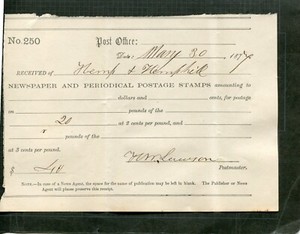 No. 250 Post Office:
Date: May 30 187
RECEIVED of Kemp & Hemphill
NEWSPAPER AND PERIODICAL POSTAGE STAMPS amounting to
dollars and cents, for postage
on pounds of the at 2 cents per pound, and
20 pounds of the
at 3 cents per pound.
$ 40
Postmaster.
NOTE.—In case of a News Agent, the space for the name of publication may be left in blank. The Publisher or News
Agent will please preserve this receipt.